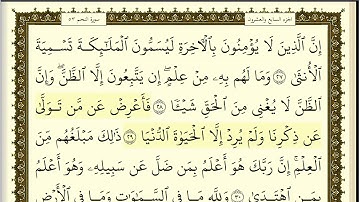 سورة النجم ٥٣
الجزء السابع والعشرون
إِنَّ ٱلَّذِينَ لَا يُؤْمِنُونَ بِٱلْءَاخِرَةِ لَيُسَمُّونَ ٱلْمَلَٰٓئِكَةَ تَسْمِيَةَ
ٱلْأُنثَىٰ ٢٧ وَمَا لَهُم بِهِۦ مِنْ عِلْمٍ ۖ إِن يَتَّبِعُونَ إِلَّا ٱلظَّنَّ ۖ وَإِنَّ
ٱلظَّنَّ لَا يُغْنِى مِنَ ٱلْحَقِّ شَيْـًٔا ٢٨ فَأَعْرِضْ عَن مَّن تَوَلَّىٰ
عَن ذِكْرِنَا وَلَمْ يُرِدْ إِلَّا ٱلْحَيَوٰةَ ٱلدُّنْيَا ٢٩ ذَٰلِكَ مَبْلَغُهُم مِّنَ
ٱلْعِلْمِ ۚ إِنَّ رَبَّكَ هُوَ أَعْلَمُ بِمَن ضَلَّ عَن سَبِيلِهِۦ وَهُوَ أَعْلَمُ
بِمَنِ ٱهْتَدَىٰ ٣٠ وَلِلَّهِ مَا فِى ٱلسَّمَٰوَٰتِ وَمَا فِى ٱلْأَرْضِ